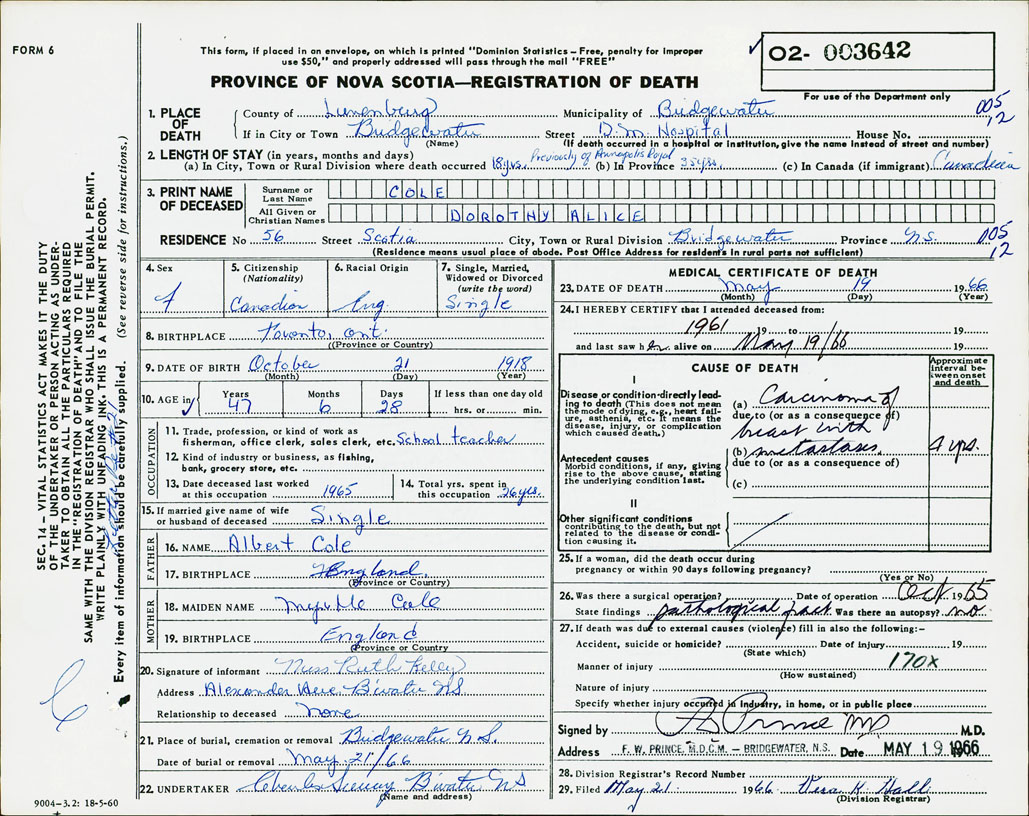 FORM 6
This form, if placed in an envelope, on which is printed "Dominion Statistics – Free, penalty for improper
use $50," and properly addressed will pass through the mail "FREE"
PROVINCE OF NOVA SCOTIA—REGISTRATION OF DEATH
02- 003642
For use of the Department only
1. PLACE OF DEATH
County of Lunenburg Municipality of Bridgewater 005
12
If in City or Town Bridgewater Street D.M. Hospital House No.
(Name) (If death occurred in a hospital or institution, give the name instead of street and number)
2. LENGTH OF STAY (in years, months and days) Previously of Annapolis Royal
(a) In City, Town or Rural Division where death occurred 18 yrs. (b) In Province 35 yrs. (c) In Canada (if immigrant) Canadian
3. PRINT NAME OF DECEASED
Surname or Last Name COLE
All Given or Christian Names DOROTHY ALICE
RESIDENCE No 56 Street Scotia City, Town or Rural Division Bridgewater Province N.S. 005
12
(Residence means usual place of abode. Post Office Address for residents in rural parts not sufficient)
4. Sex F
5. Citizenship (Nationality) Canadian
6. Racial Origin Eng.
7. Single, Married, Widowed or Divorced (write the word) Single
8. BIRTHPLACE Toronto, Ont.
(Province or Country)
9. DATE OF BIRTH October 21 1918
(Month) (Day) (Year)
10. AGE in Years 47 Months 6 Days 28 If less than one day old hrs. or min.
OCCUPATION
11. Trade, profession, or kind of work as
fisherman, office clerk, sales clerk, etc. School teacher
12. Kind of industry or business, as fishing,
bank, grocery store, etc.
13. Date deceased last worked at this occupation 1965
14. Total yrs. spent in this occupation 26 yrs.
15. If married give name of wife or husband of deceased Single
FATHER
16. NAME Albert Cole
17. BIRTHPLACE England
(Province or Country)
MOTHER
18. MAIDEN NAME Cole
19. BIRTHPLACE England
(Province or Country
20. Signature of informant Miss Ruth Kelly
Address Alexander Ave. B'water NS
Relationship to deceased None
21. Place of burial, cremation or removal Bridgewater N.S.
Date of burial or removal May 21/66
22. UNDERTAKER B'water NS
(Name and address)
9004–3.2: 18-5-60
MEDICAL CERTIFICATE OF DEATH
23. DATE OF DEATH May 19 1966
(Month) (Day) (Year)
24. I HEREBY CERTIFY that I attended deceased from:
1961 19 to 19
and last saw her alive on May 19/66 19
CAUSE OF DEATH
Approximate interval between onset and death
I
Disease or condition directly leading to death (This does not mean the mode of dying, e.g., heart failure, asthenia, etc. It means the disease, injury, or complication which caused death.)
(a) Carcinoma of
due to (or as a consequence of)
breast with
(b) metastases. 4 yrs.
due to (or as a consequence of)
Antecedent causes
Morbid conditions, if any, giving rise to the above cause, stating the underlying condition last.
(c)
II
Other significant conditions
contributing to the death, but not related to the disease or condition causing it.
25. If a woman, did the death occur during
pregnancy or within 90 days following pregnancy?
(Yes or No)
26. Was there a surgical operation? Date of operation Oct 1965
State findings pathological fract Was there an autopsy? no
27. If death was due to external causes (violence) fill in also the following:-
Accident, suicide or homicide? Date of injury 19
(State which)
Manner of injury 170x
(How sustained)
Nature of injury
Specify whether injury occurred in industry, in home, or in public place
Signed by Prince MD M.D.
Address F. W. PRINCE, M.D.C.M. – BRIDGEWATER, N.S. Date MAY 19 1966
28. Division Registrar's Record Number
29. Filed May 21 1966 Vera K. Hall
(Division Registrar)
SEC. 14 – VITAL STATISTICS ACT MAKES IT THE DUTY
OF THE UNDERTAKER OR PERSON ACTING AS UNDER-
TAKER TO OBTAIN ALL THE PARTICULARS REQUIRED
IN THE "REGISTRATION OF DEATH" AND TO FILE THE
SAME WITH THE DIVISION REGISTRAR WHO SHALL ISSUE THE BURIAL PERMIT.
WRITE PLAINLY WITH UNFADING INK. THIS IS A PERMANENT RECORD.
Every item of information should be carefully supplied. (See reverse side for instructions.)